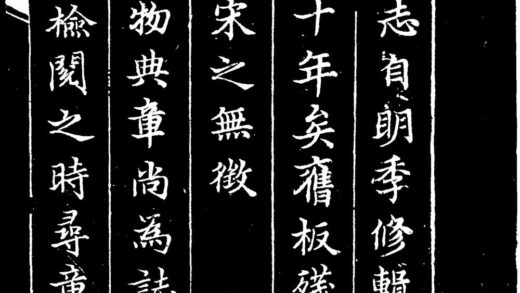 志自明季修輯
十年矣舊板殘
宋之無徵
物典章尚為誌
檢閱之時尋章